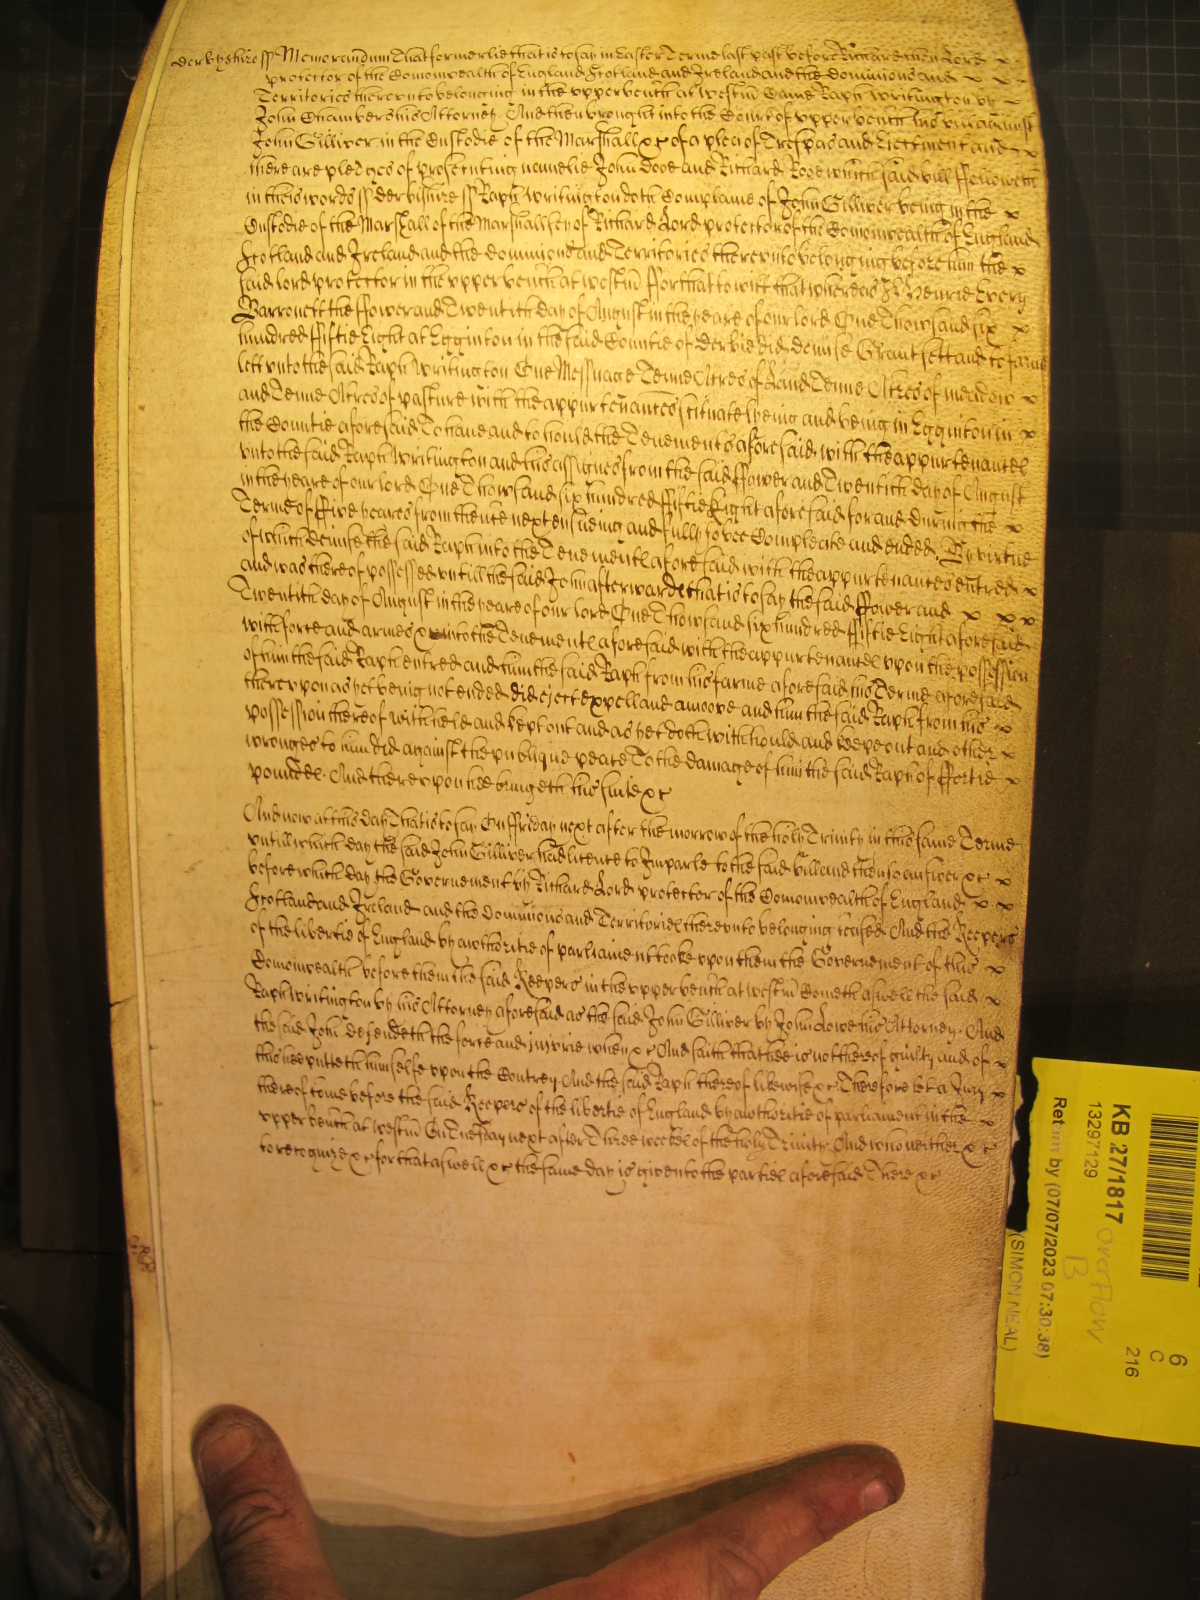 Derbyshire ss Memorandum That formerlie that is to say in Easter Terme last past before Richard then Lord x
protector of the Comonwealth of England Scotland and Ireland and the Dominions and x x
Territories thereunto belonging in the upper bench at Westm Came Raph Writington by x
John Chambers his Attorney And then brought into the Court of upper bench his bill against
John Gilliver in the Custodie of the Marshall xc of a plea of Trespas and Eiectment and x
there are pledges of prosecuting namelie John Dooe and Richard Rooe which said bill followeth
in theis words ss Derbishire ss Raph Writington doth Complaine of John Gilliver being in the x
Custodie of the Marshall of the Marshallsey of Richard Lord protector of the Comonwealth of England
Scotland and Ireland and the Dominions and Territories thereunto belonging before him the x
said lord protector in the upper bench at westm ffor that to witt that whereas Sr Henrie Every
Barronett the ffower and Twentith day of August in the yeare of our lord One Thowsand six x
hundred ffiftie Eight at Egginton in the said Countie of Derbie did demise Grant sett and to farme
lett unto the said Raph Writington One Messuage Tenne Acres of Land Tenne Acres of meadow x
and Tenne Acres of pasture with the appurtenances scituate lyeing and being in Egginton in x
the Countie aforesaid To have and to hould the Tenements aforesaid with the appurtenances
unto the said Raph Writington and his assignes from the said ffower and Twentith day of August
in the yeare of our lord One Thowsand six hundred ffiftie Eight aforesaid for and during the x
Terme of ffive yeares from thence next ensueing and fully to bee Compleate and ended. By virtue
of which demise the said Raph into the Tenements aforesaid with the appurtenances entred x
and was thereof possessed untill the said John afterwards that is to say the said ffower and x x x
Twentith day of August in the yeare of our lord One Thowsand six hundred ffiftie Eight aforesaid
with force and armes xc into the Tenements aforesaid with the appurtenances upon the possession
of him the said Raph entred and him the said Raph from his farme aforesaid his Terme aforesaid
thereupon as yet being not ended did eject expell and amoove and him the said Raph from his x
possession thereof withheld and kept out and as yet doth withhould and keepe out and other x
wronges to him did against the publique peace To the damage of him the said Raph of ffortie x
poundes. And thereupon hee bringeth his suite xc
And now at this day That is to say On ffriday next after the morrow of the holy Trinity in this same Terme
untill which day the said John Gilliver had licence to Imparle to the said bill and then to answer xc x
before which day the Governement by Richard Lord protector of the Comonwealth of England x x
Scotland and Ireland and the Dominions and Territories thereunto belonging ceased And the Keepers
of the libertie of England by authoritie of parliament tooke upon them the Governement of this x
Comonwealth before them the said Keepers in the upper bench at westm Cometh aswell the said x
Raph Writington by his Attorney aforesaid as the said John Gilliver by John Lowe his Attorney. And
the said John defendeth the force and iniurie when xc And saith that hee is not thereof guilty and of x
this hee putteth himselfe upon the Contrey And the said Raph thereof likewise xc Therefore let a Jury x
thereof come before the said Keepers of the libertie of England by authoritie of parliament in the x
upper bench at westm On Tuesday next after Three weekes of the holy Trinity. And who neither xc
to recognize xc for that aswell xc the same day is given to the parties aforesaid There xc
KB 27/1817
13297129
Return by (07/07/2023 07:30:38)
(SIMON NEAL)
overflow
B
6
C
216